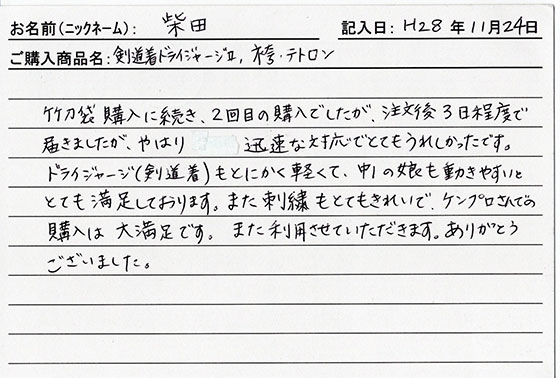 お名前(ニックネーム): 柴田 記入日: H28 年 11月24日
ご購入商品名: 剣道着ドライジャージⅡ, 袴・テトロン
竹刀袋購入に続き、2回目の購入でしたが、注文後3日程度で
届きましたが、やはり 迅速な対応でとてもうれしかったです。
ドライジャージ(剣道着)もとにかく軽くて、中1の娘も動きやすいと
とても満足しております。また刺繍もとてもきれいで、ケンプロさんでの
購入は大満足です。また利用させていただきます。ありがとう
ございました。